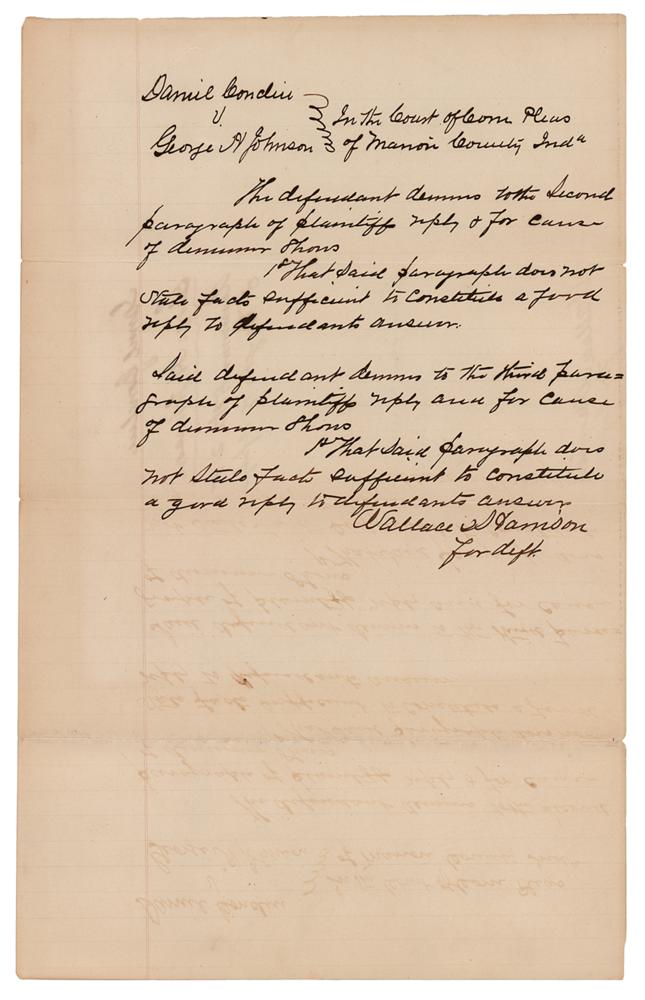 Daniel Condit
v.
George A Johnson
In the Court of Com Pleas
of Marion County Indª
The defendant demurs to the Second
paragraph of plaintiffs reply & for cause
of demurrer Shows
1st That Said paragraph does not
State facts sufficient to constitute a good
reply to defendants answer.
Said defendant demurs to the third para=
graph of plaintiffs reply and for cause
of demurrer Shows
1st That Said paragraph does
not State facts sufficient to constitute
a good reply to defendants answer
Wallace & Harrison
for deft.